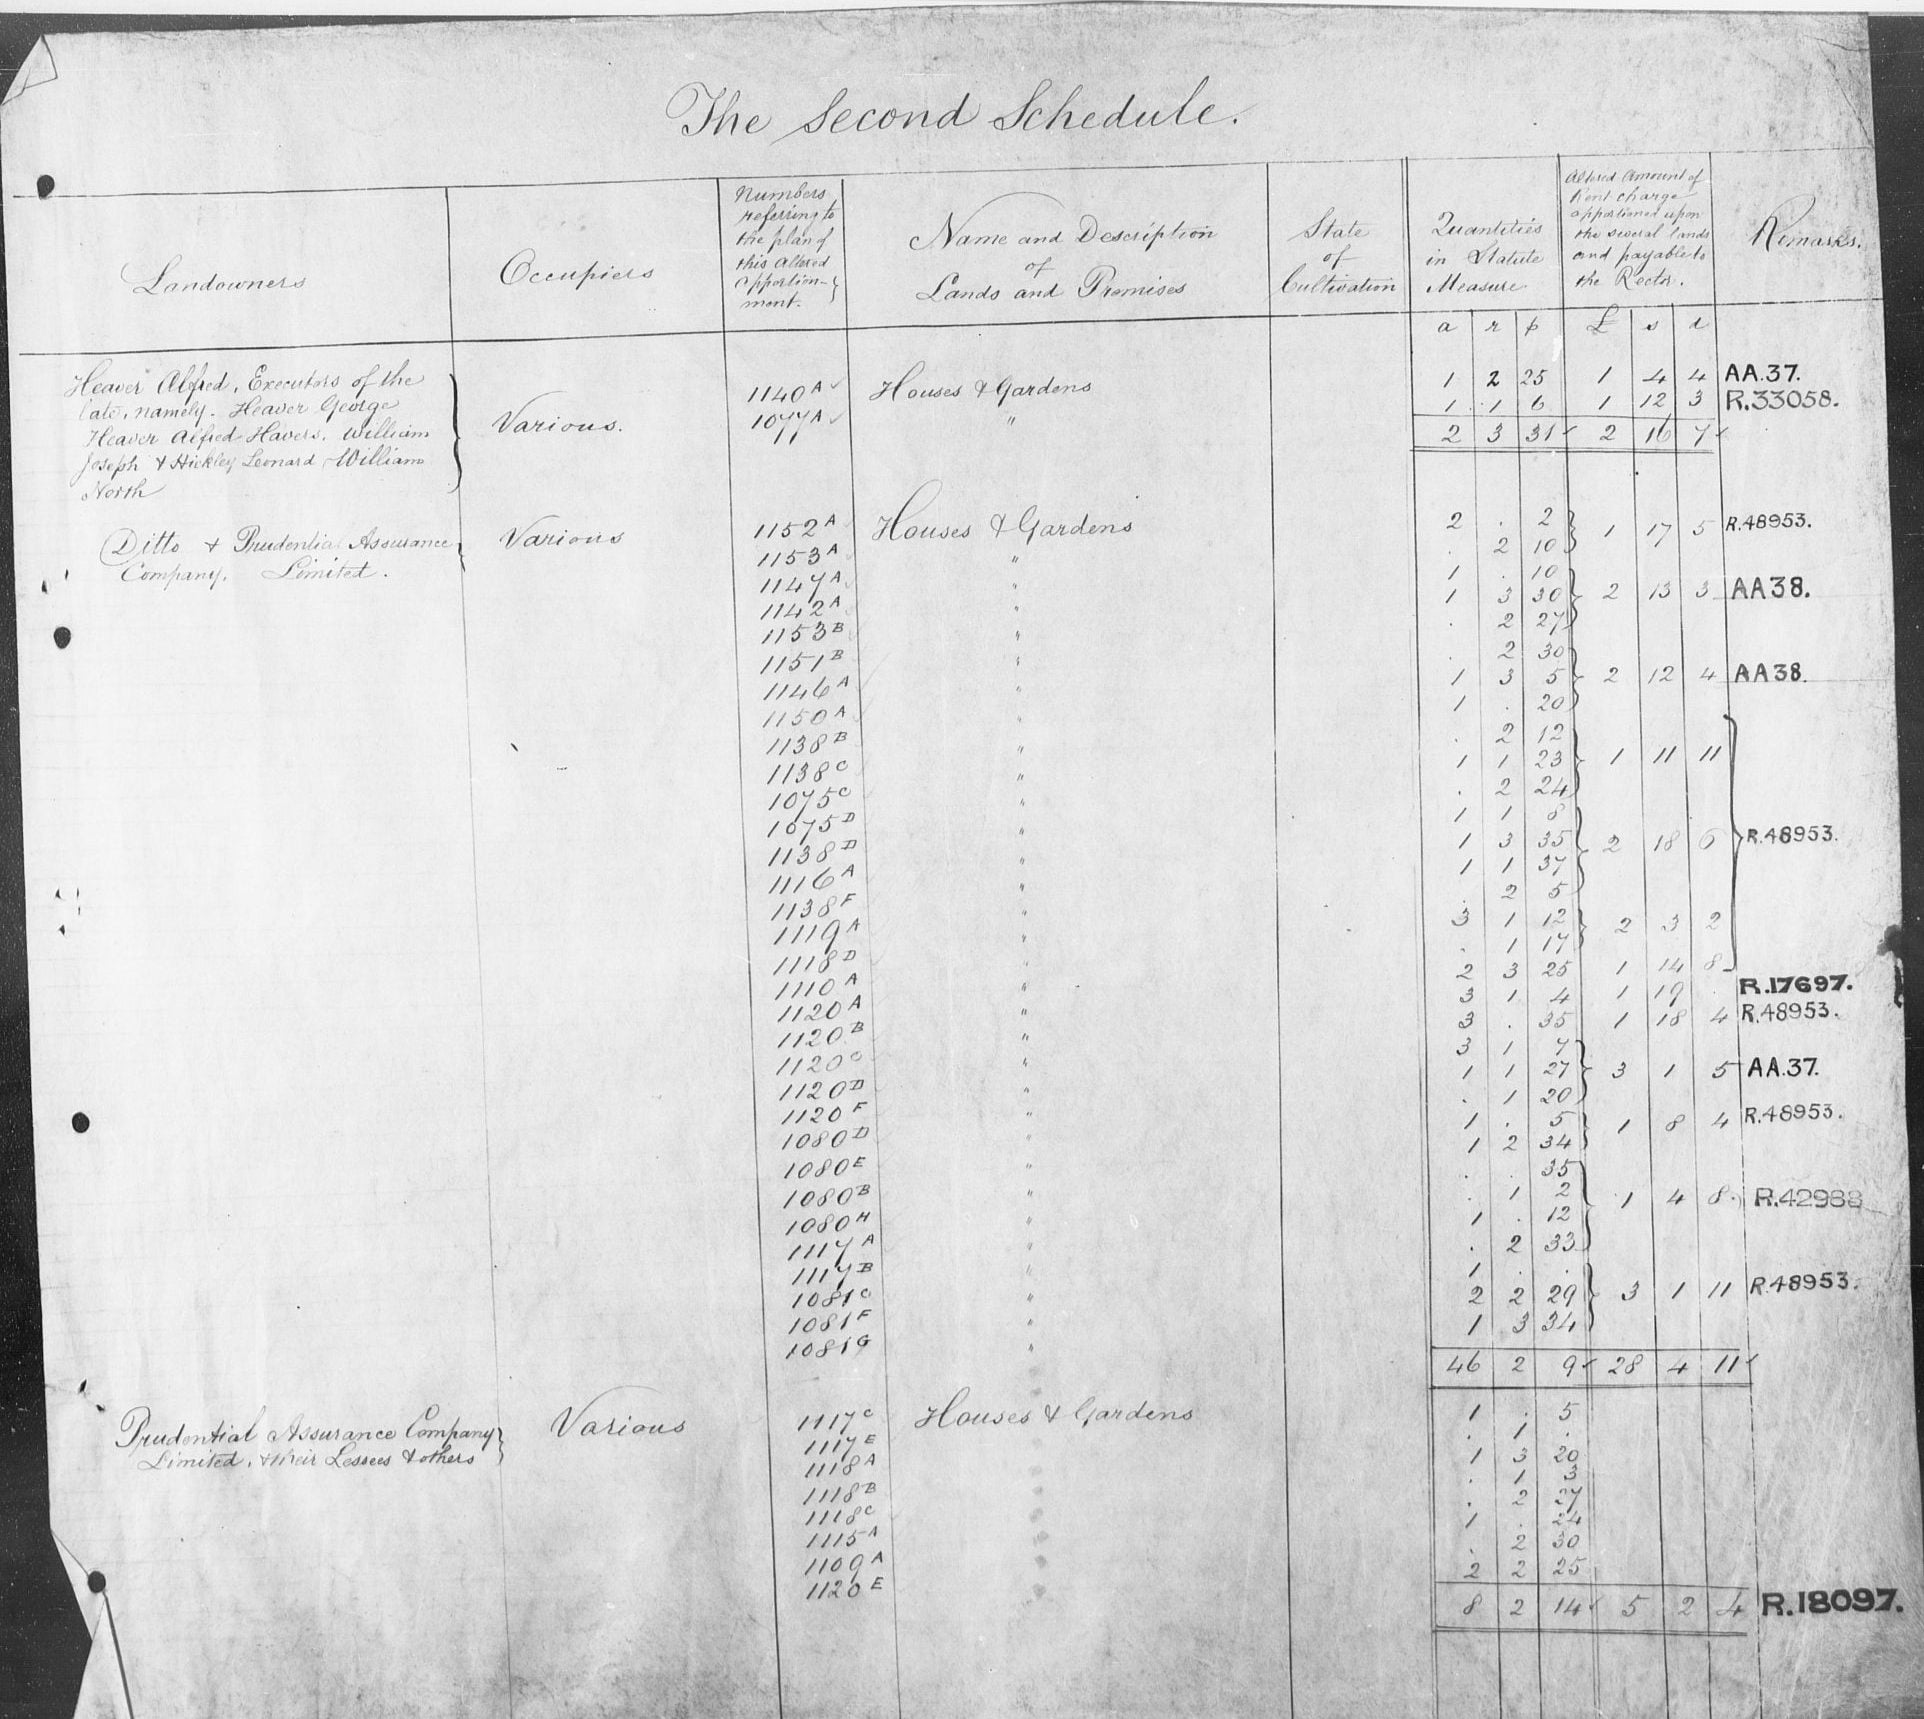 The Second Schedule.
Landowners
Occupiers
Numbers
referring to
the plan of
this altered
apportion-
ment.
Name and Description
of
Lands and Premises
State
of
Cultivation
Quantities
in Statute
Measure
Altered Amount of
Rent charge
apportioned upon
the several lands
and payable to
the Rector.
Remarks.
a r p £ s d
Heaver Alfred, Executors of the
late, namely. Heaver George
Heaver Alfred Havers, William
Joseph & Hickley Leonard William
North
Various.
1140A Houses & Gardens 1 2 25 1 4 4 AA.37.
1077A " 1 1 6 1 12 3 R.33058.
2 3 31 2 16 7
Ditto & Prudential Assurance
Company, Limited.
Various
1152A Houses & Gardens 2 . 2
1153A " . 2 10 1 17 5 R.48953.
1147A " 1 . 10
1142A " 1 3 30 2 13 3 AA38.
1153B " . 2 27
1151B " . 2 30
1146A " 1 3 5 2 12 4 AA38.
1150A " 1 . 20
1138B " . 2 12
1138C " 1 1 23 1 11 11
1075C " . 2 24
1075D " 1 1 8
1138D " 1 3 35 2 18 6 R.48953.
1116A " 1 1 37
1138F " . 2 5
1119A " 3 1 12 2 3 2
1118D " . 1 17
1110A " 2 3 25 1 14 8
1120A " 3 1 4 1 19 . R.17697.
1120B " 3 . 35 1 18 4 R.48953.
1120C " 3 1 7
1120D " 1 1 27 3 1 5 AA.37.
1120F " . 1 20
1080D " 1 . 5 1 8 4 R.48953.
1080E " 1 2 34
1080B " . . 35
1080H " . 1 2 1 4 8 R.42988
1117A " 1 . 12
1117B " . 2 33
1081C " 1 . .
1081F " 2 2 29 3 1 11 R.48953.
1081G " 1 3 34
46 2 9 28 4 11
Prudential Assurance Company
Limited, & their Lessees & others
Various
1117C Houses & Gardens 1 . 5
1117E . 1 .
1118A 1 3 20
1118B . 1 3
1118C . 2 27
1115A 1 . 24
1109A . 2 30
1120E 2 2 25
8 2 14 5 2 4 R.18097.